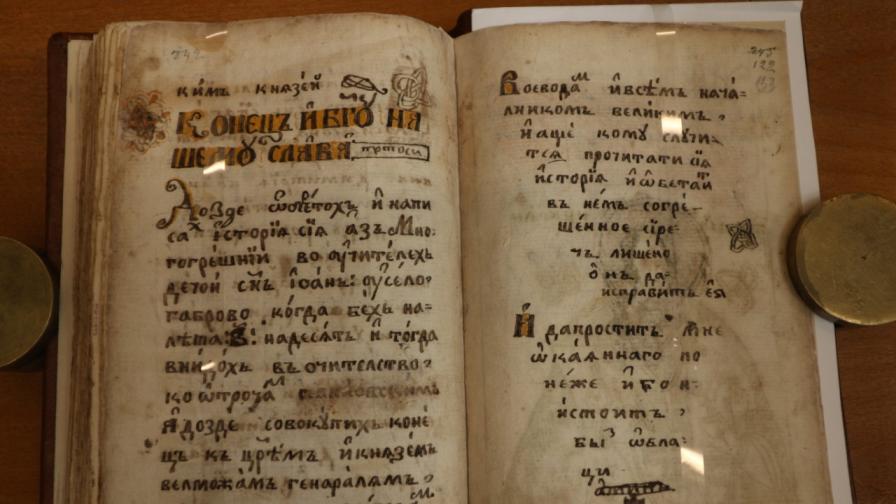 242
кимъ кнѧзей
Конецъ и бг҃ꙋ на
шемꙋ слава
До зде ѡбретохъ и напи
сахъ исторїѧ сїѧ азъ Мно
гогрешнїи во ꙋчителехъ
детой сн҃ъ Іѡанъ: ꙋ село
габрово когда бехъ на
лета: в҃: надесѧть и тогда
внидохъ въ очителство
ко ѡтроча
Ꙗ до зде совокꙋпихъ коне
цъ къ цр҃емъ и кнѧземъ
велможамъ генаралѧмъ
245
122
Воеводамъ и всемъ нача
лникомъ великимъ
и аще комꙋ слꙋчи
тсѧ прочитати сїѧ
исторїѧ и ѡбетаит
въ немъ согре
шенное їре
чъ лишено
онъ да
исправитъ еѧ
И да простит мне
ѡкаѧннаго по
неже и бо н
истоитъ
бы ѡбла
ци